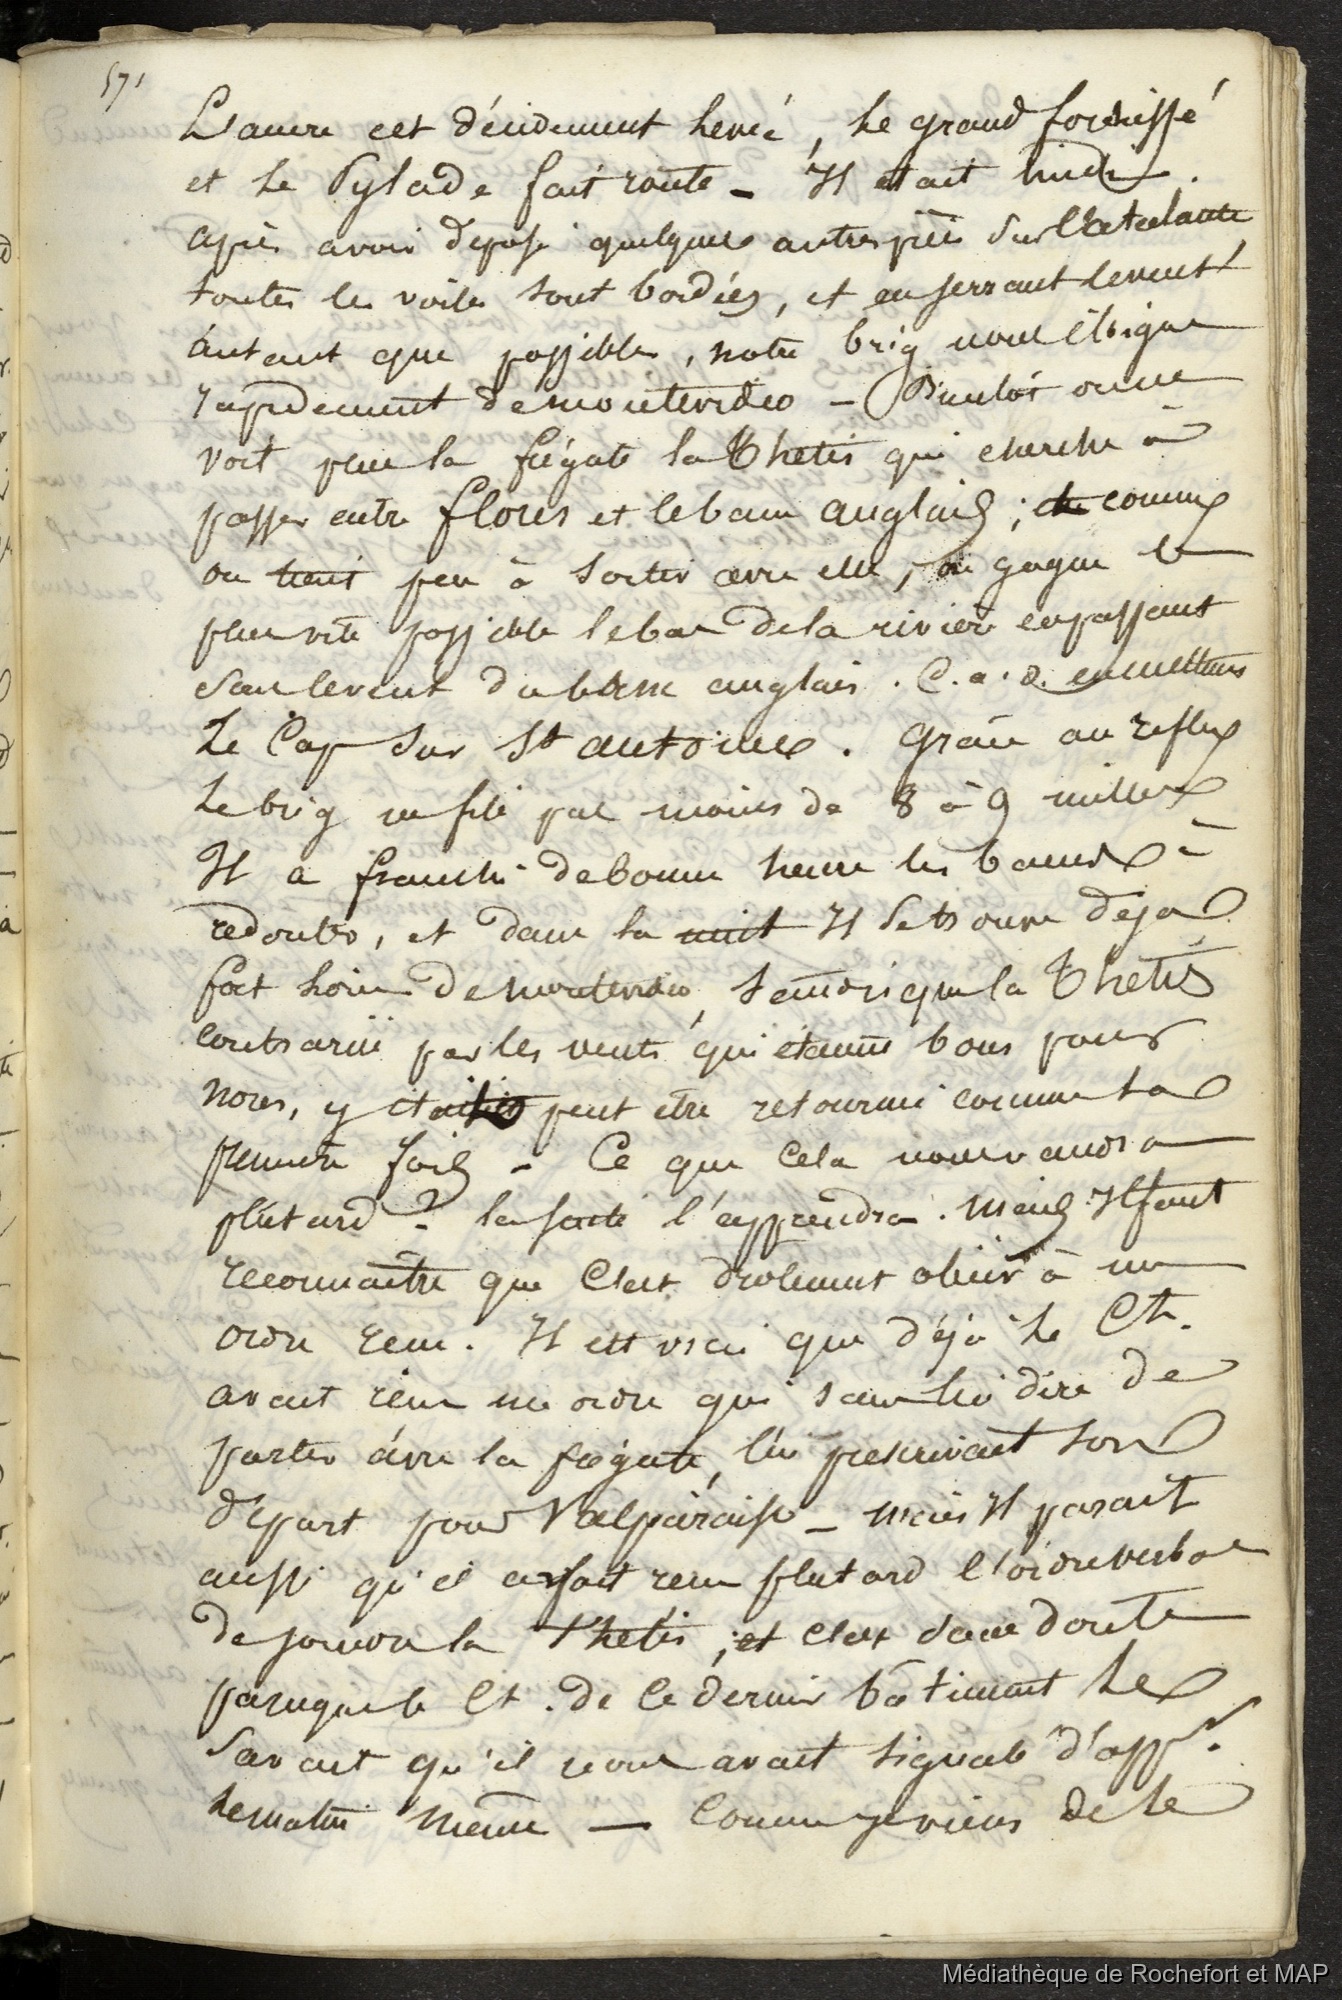 571
L'ancre est décidement levée, le grand foc hissé
et le Pylade fait route - Il etait midi.
après avoir deposé quelques autres pièces sur l'Atalante,
toutes les voiles sont bordées, et en serrant le vent
autant que possible, notre brig nous éloigne
rapidement de montevideo - Bientôt on ne
voit plus la frégate la Thetis qui cherche à
passer entre flores et le banc anglais ; comme
on tient peu à rester avec elle, on gagne le
plus vite possible le bas de la rivière en passant
sous le vent du banc anglais. C.a.d. en mettant
le Cap sur St antoine. grâce au reflux
le brig ne file pas moins de 8 à 9 milles
Il a franchi de bonne heure les bancs à
redouter, et dans la nuit Il se trouve deja
fort loin de montevideo, tandis que la Thetis
contrariée par les vents qui étaient bons pour
nous, y était peut etre retournée comme la
premiere fois - Ce que cela nous vaudra
plutard ? la suite l'apprendra. mais Il faut
reconnaître que c'est drolement obéir à un
ordre reçu. Il est vrai que déjà le Ct.
avait reçu un ordre qui sans lui dire de
partir avec la frégate, lui prescrivait son
départ pour Valparaiso - mais Il parait
aussi qu'il avait reçu plutard l'ordre verbal
de suivre la Thetis ; et c'est sans doute
parceque le Ct. de ce dernier bâtiment le
savait qu'il nous avait signalé d'appr.
le matin même — Comme je viens de le